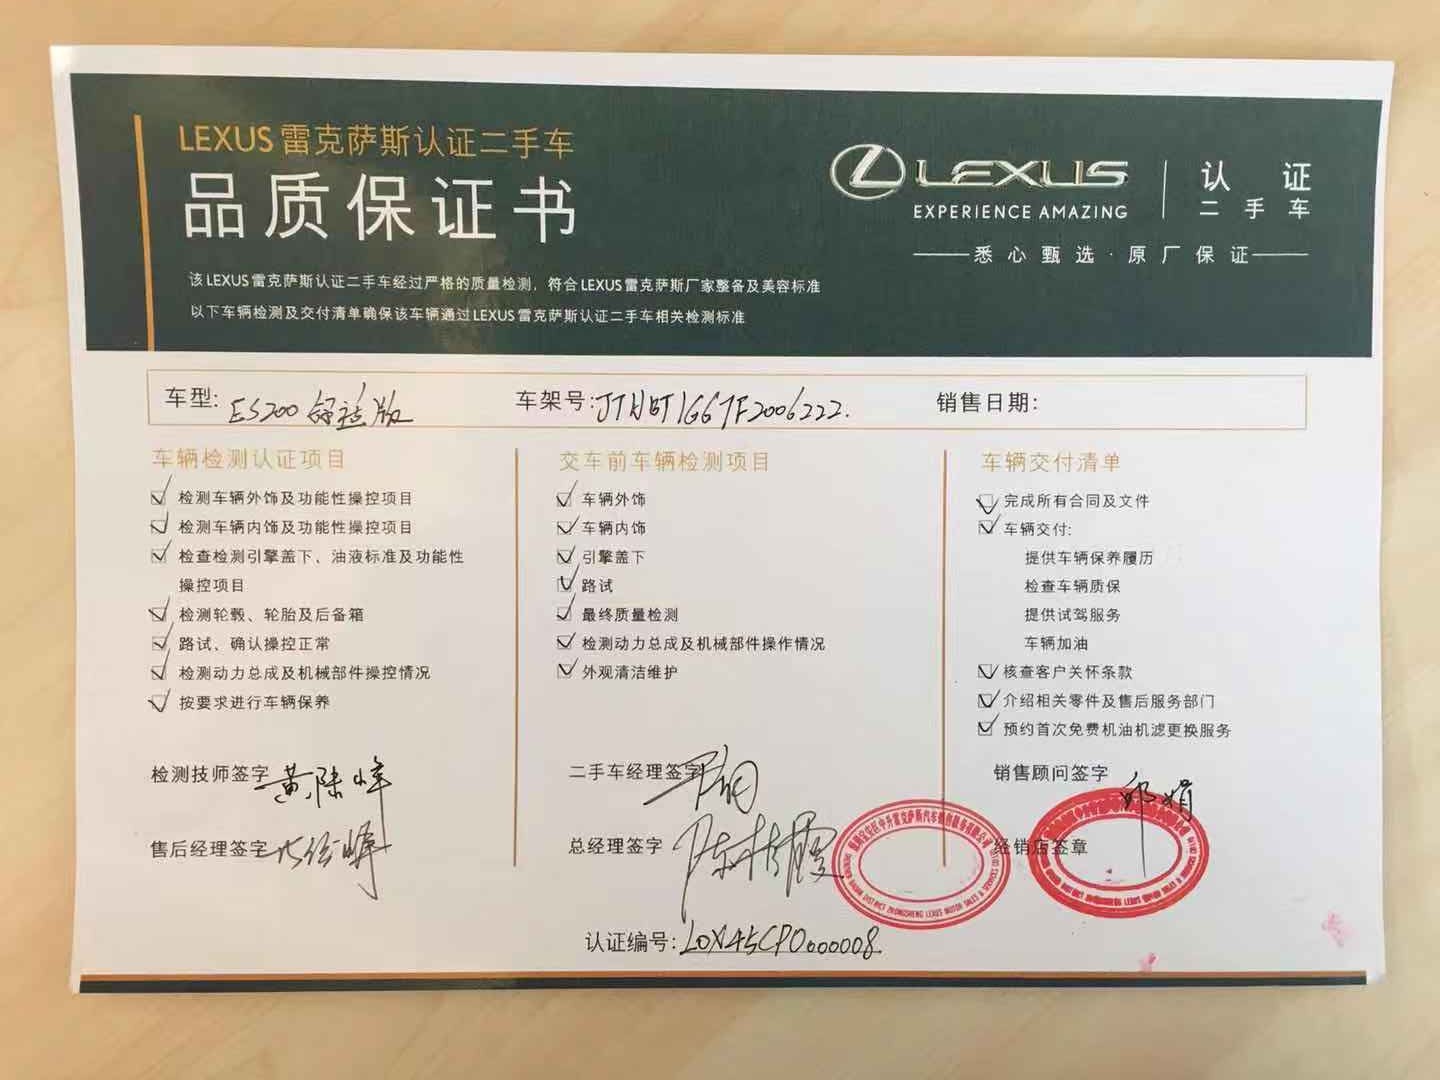 LEXUS 雷克萨斯认证二手车
品质保证书
LEXUS 认证
EXPERIENCE AMAZING 二手车
悉心甄选·原厂保证
该LEXUS雷克萨斯认证二手车经过严格的质量检测，符合LEXUS雷克萨斯厂家整备及美容标准
以下车辆检测及交付清单确保该车辆通过LEXUS雷克萨斯认证二手车相关检测标准
车型: ES200 舒适版 车架号: 销售日期:
车辆检测认证项目
检测车辆外饰及功能性操控项目
检测车辆内饰及功能性操控项目
检查检测引擎盖下、油液标准及功能性
操控项目
检测轮毂、轮胎及后备箱
路试、确认操控正常
检测动力总成及机械部件操控情况
按要求进行车辆保养
检测技师签字
售后经理签字
交车前车辆检测项目
车辆外饰
车辆内饰
引擎盖下
路试
最终质量检测
检测动力总成及机械部件操作情况
外观清洁维护
二手车经理签字
总经理签字
车辆交付清单
完成所有合同及文件
车辆交付:
提供车辆保养履历
检查车辆质保
提供试驾服务
车辆加油
核查客户关怀条款
介绍相关零件及售后服务部门
预约首次免费机油机滤更换服务
销售顾问签字
经销店签章
认证编号: LOX45CPO000008